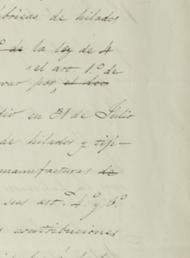 fábricas de hilados
1º de la ley de 4
el art. 1.º de
por, el dos
en 31 de Julio
de hilados y teji-
manufacturas de
sus art. 4º y 6º
contribuciones